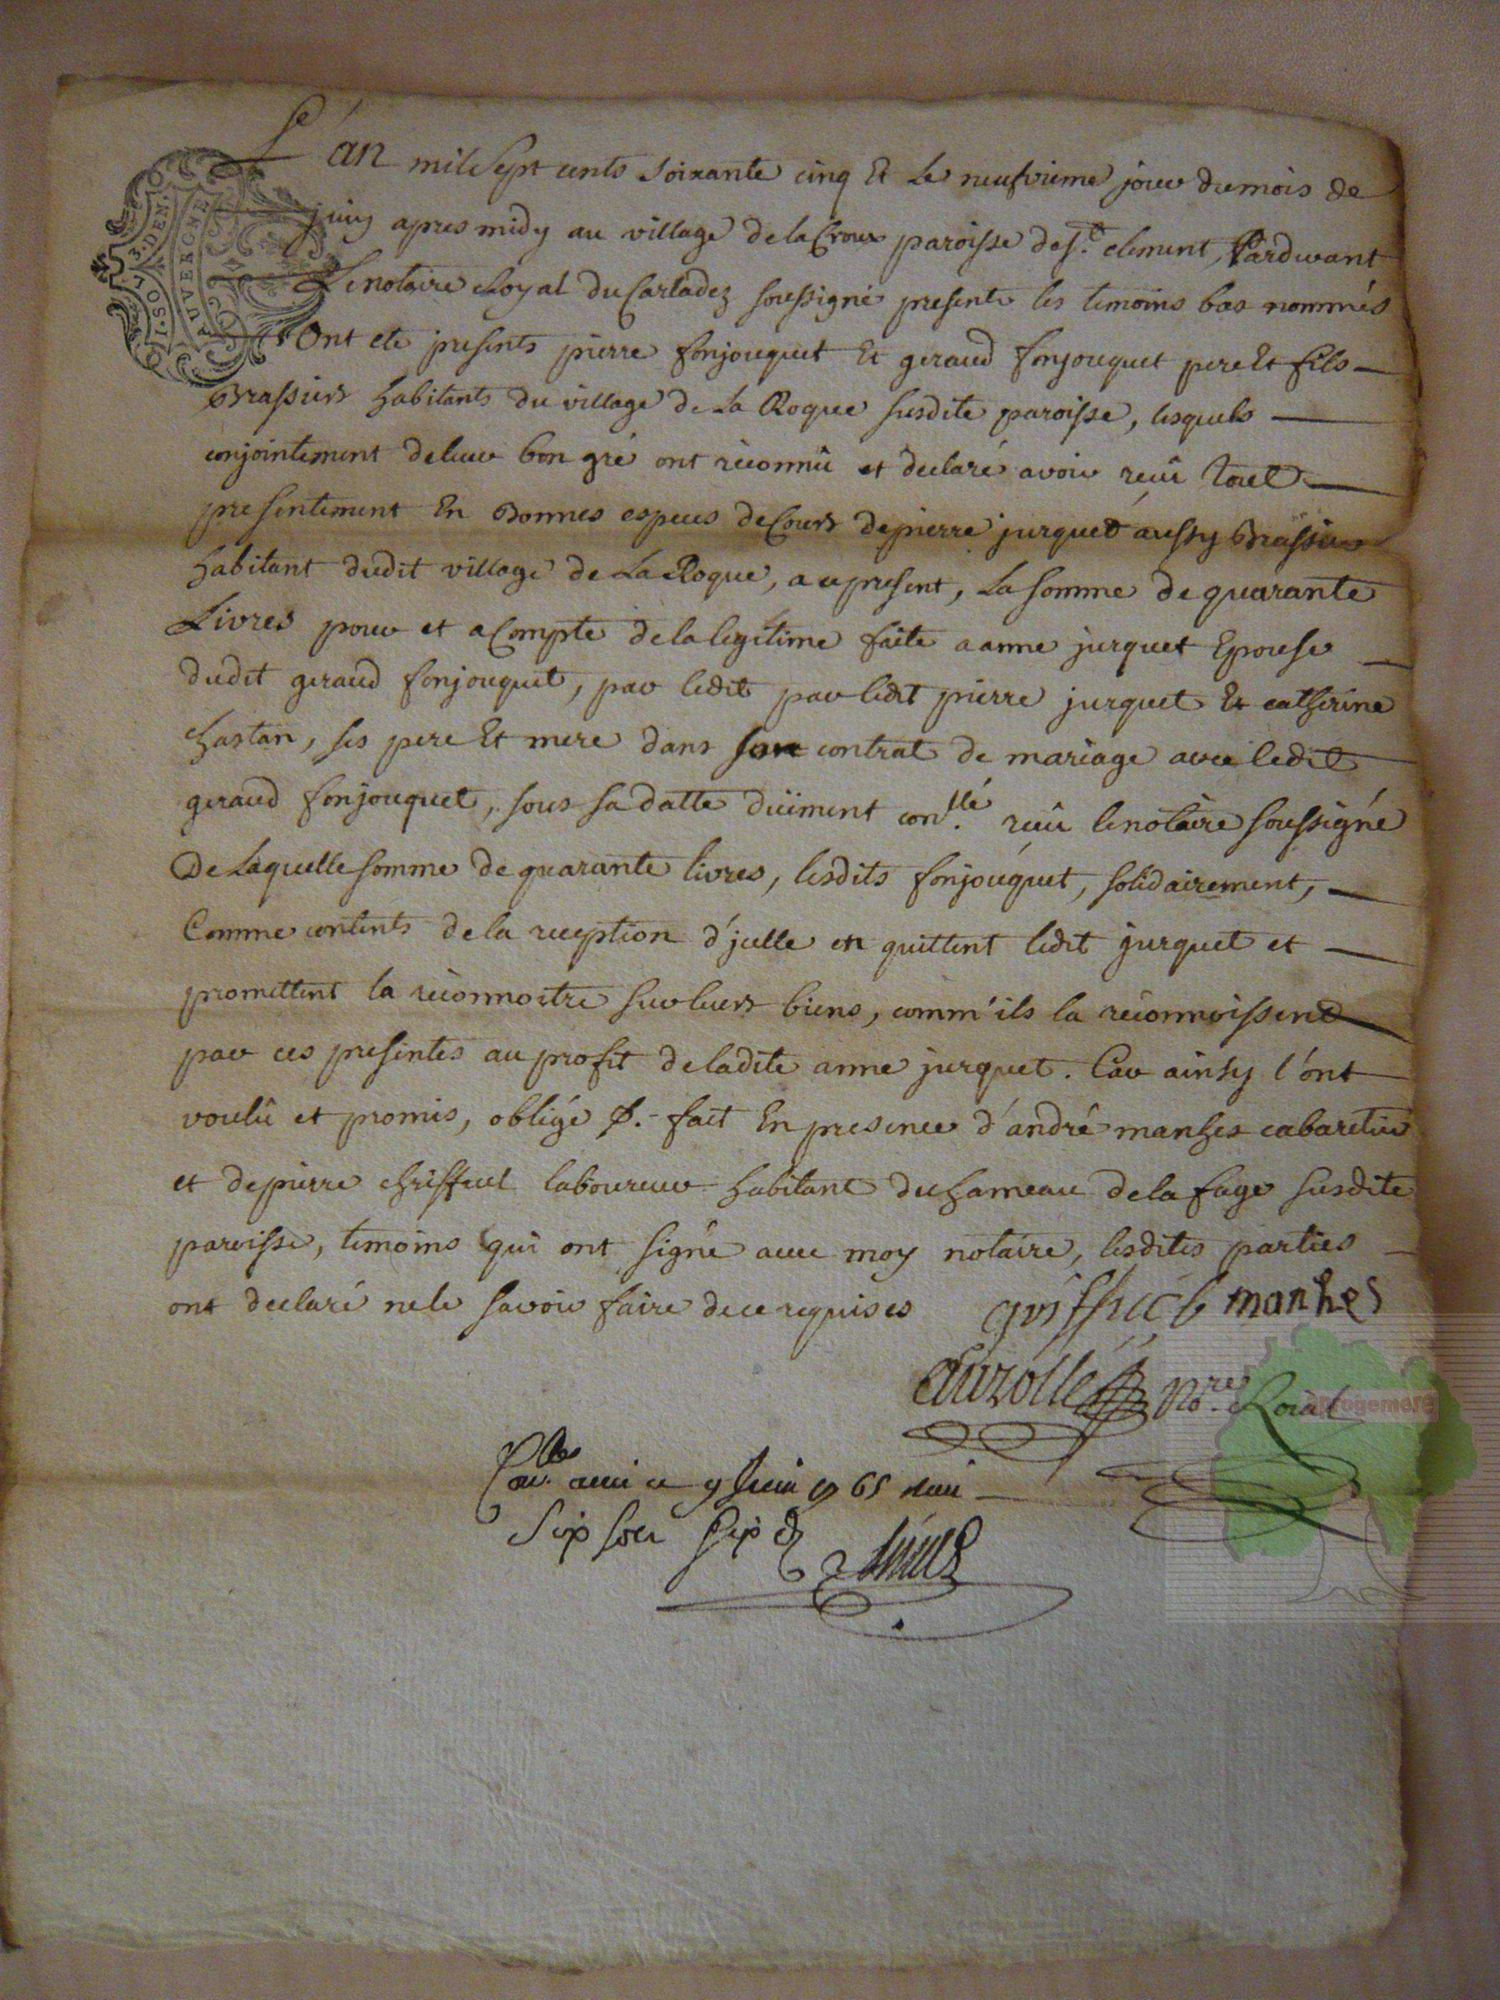 L'an mil sept cents soixante cinq Et Le neufvieme jour du mois de
juin apres midy au village de la Croux paroisse de st. clement, Pardevant
Le notaire Royal du Carladez soussigné presents les temoins bas nommés
Ont été presents pierre fonjouquet Et geraud fonjouquet pere Et fils
Brassiers habitants du village de La Roque susdite paroisse, lesquels
conjointement de leur bon gré ont reconnû et declaré avoir reçû tout
presentement En Bonnes especes de Cours de pierre jurquet aussy Brassier
habitant dudit village de La Roque, a ce present, La somme de quarante
Livres pour et acompte de la legitime faite a anne jurquet Epouse
dudit geraud fonjouquet, par ledit par ledit pierre jurquet Et catherine
chastan, ses pere Et mere dans son contrat de mariage avec ledit
geraud fonjouquet, sous sa datte düement con.llé reçû le notaire soussigné
De Laquelle somme de quarante livres, lesdits fonjouquet, solidairement,
Comme contents de la reception d'jcelle en quittent ledit jurquet et
promettent la reconnoitre sur leurs biens, comm'ils la reconnoissent
par ces presentes au profit de ladite anne jurquet. Car ainsy l'ont
voulû et promis, obligé &.- fait En presence d'andré manhes cabaretier
et de pierre laboureur habitant du hameau de la fage susdite
paroisse, temoins qui ont signé avec moy notaire, lesdites parties
ont declaré ne le savoir faire de ce requises manhes
auzolle no.re Roial
Con.llé a ce 9 Juin 1765 Reçu
Six sols six d
AUVERGNE
1.SOL 3.DEN.
aprogemere